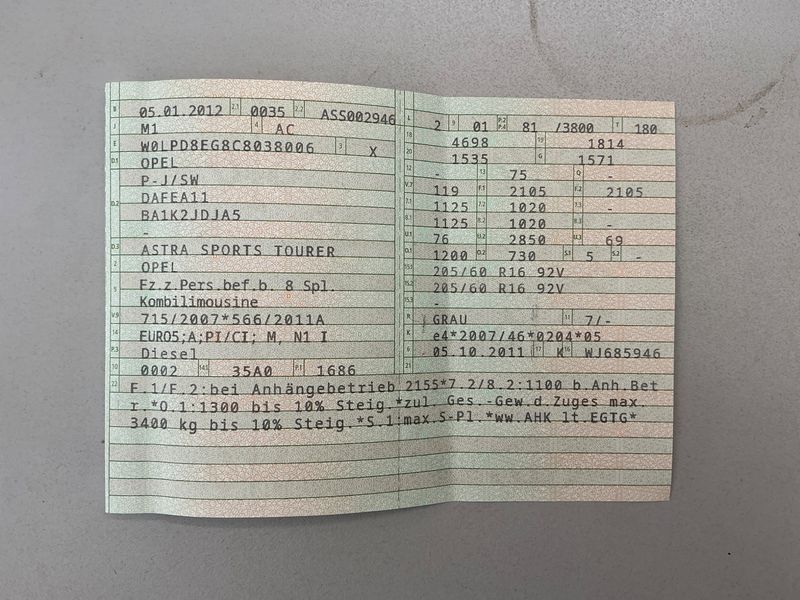 B 05.01.2012 2.1 0035 2.2 ASS002946
J M1 4 AC
E W0LPD8EG8C8038006 3 X
D.1 OPEL
P-J/SW
D.2 DAFEA11
BA1K2JDJA5
-
D.3 ASTRA SPORTS TOURER
2 OPEL
5 Fz.z.Pers.bef.b. 8 Spl.
Kombilimousine
V.9 715/2007*566/2011A
14 EURO5;A;PI/CI; M, N1 I
P.3 Diesel
10 0002 14.1 35A0 P.1 1686
L 2 9 01 P.2 P.4 81 /3800 T 180
18 4698 19 1814
20 1535 G 1571
12 - 13 75 Q -
V.7 119 F.1 2105 F.2 2105
7.1 1125 7.2 1020 7.3 -
8.1 1125 8.2 1020 8.3 -
U.1 76 U.2 2850 U.3 69
O.1 1200 O.2 730 S.1 5 S.2 -
15.1 205/60 R16 92V
15.2 205/60 R16 92V
15.3 -
R GRAU 11 7/-
K e4*2007/46*0204*05
6 05.10.2011 17 K 16 WJ685946
21
22 F.1/F.2:bei Anhängebetrieb 2155*7.2/8.2:1100 b.Anh.Bet
r.*O.1:1300 bis 10% Steig.*zul. Ges.-Gew.d.Zuges max.
3400 kg bis 10% Steig.*S.1:max.S-Pl.*ww.AHK lt.EGTG*